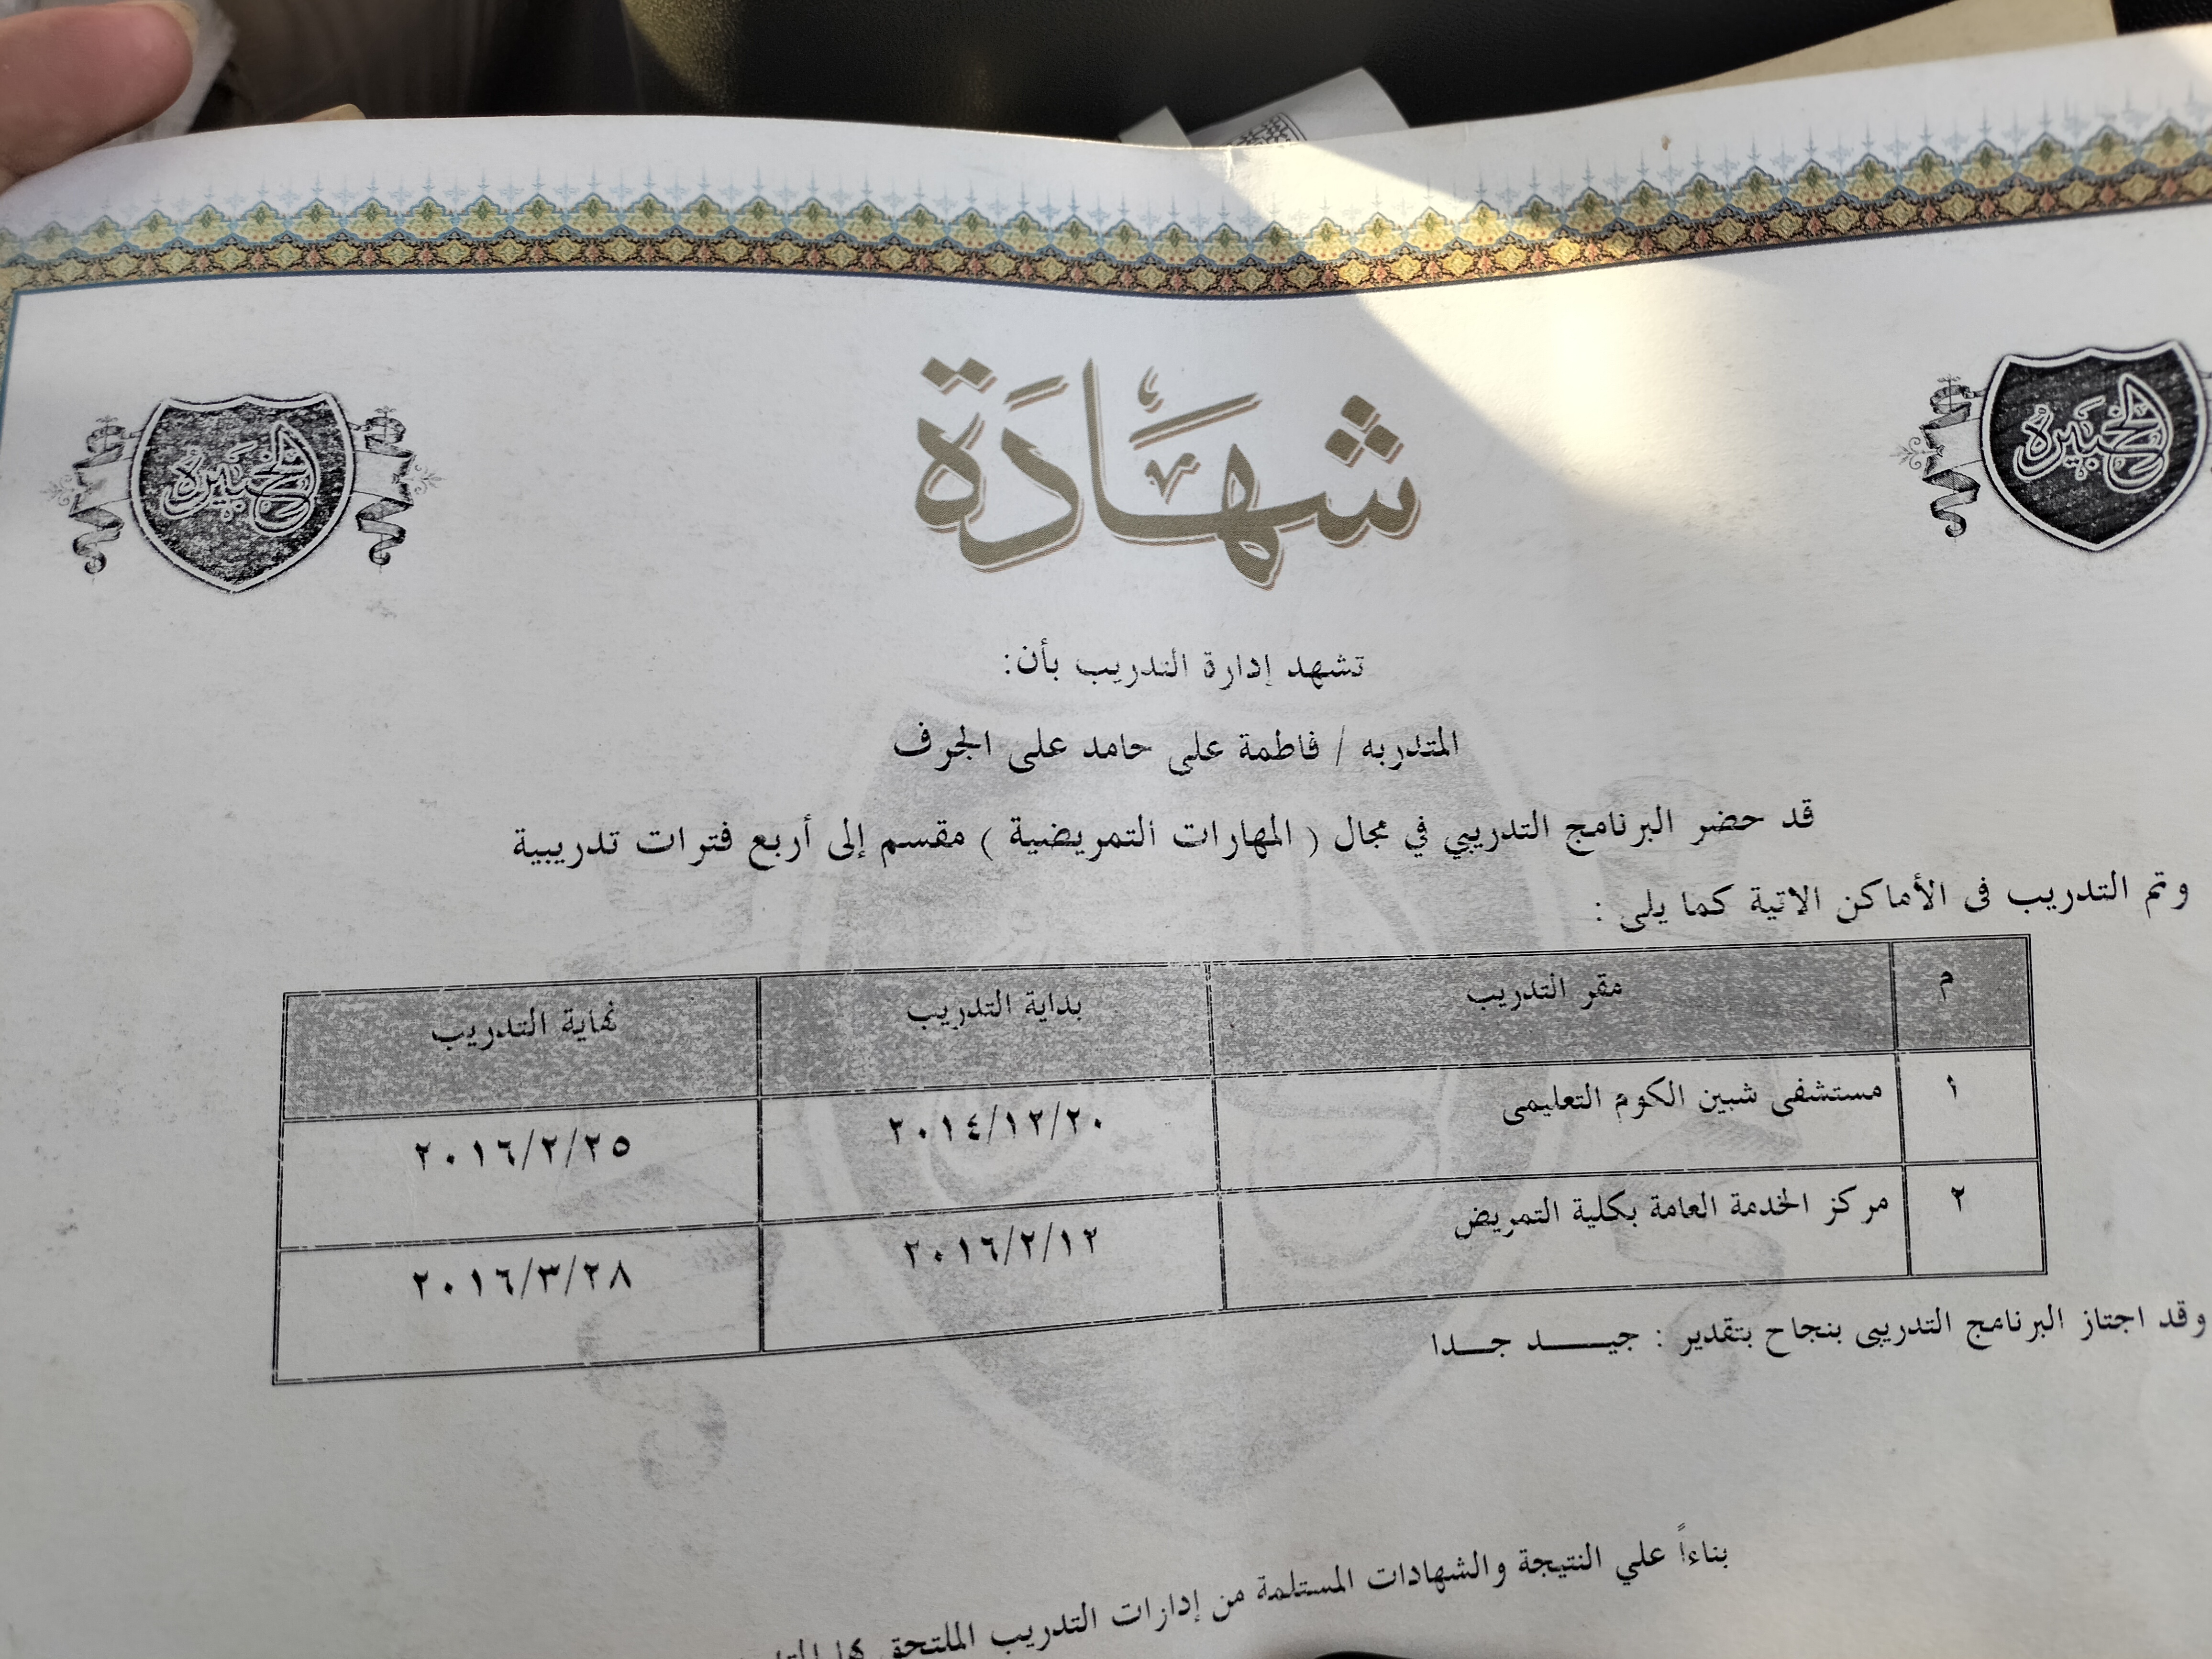 شَهَادَة
الخبيره
الخبيره
تشهد إدارة التدريب بأن:
المتدربه / فاطمة على حامد على الجرف
قد حضر البرنامج التدريبي في مجال ( المهارات التمريضية ) مقسم إلى أربع فترات تدريبية
وتم التدريب فى الأماكن الاتية كما يلى :
م مقر التدريب بداية التدريب نهاية التدريب
١ مستشفى شبين الكوم التعليمى ٢٠١٤/١٢/٢٠ ٢٠١٦/٢/٢٥
٢ مركز الخدمة العامة بكلية التمريض ٢٠١٦/٢/١٢ ٢٠١٦/٣/٢٨
وقد اجتاز البرنامج التدريبى بنجاح بتقدير : جيـــــد جـــدا
بناءاً علي النتيجة والشهادات المستلمة من إدارات التدريب الملتحق بها